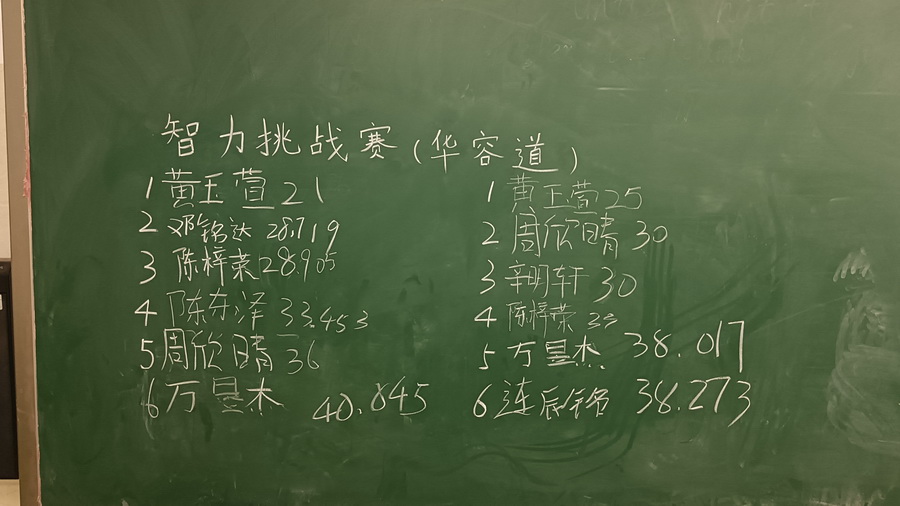 智力挑战赛(华容道)
1 黄玉萱 21
2 邓铭达 28.719
3 陈梓荣 28.905
4 陈东泽 33.453
5 周欣晴 36
6 万昱杰 40.845
1 黄玉萱 25
2 周欣晴 30
3 辛明轩 30
4 陈梓荣 33
5 万昱杰 38.017
6 连辰铭 38.273